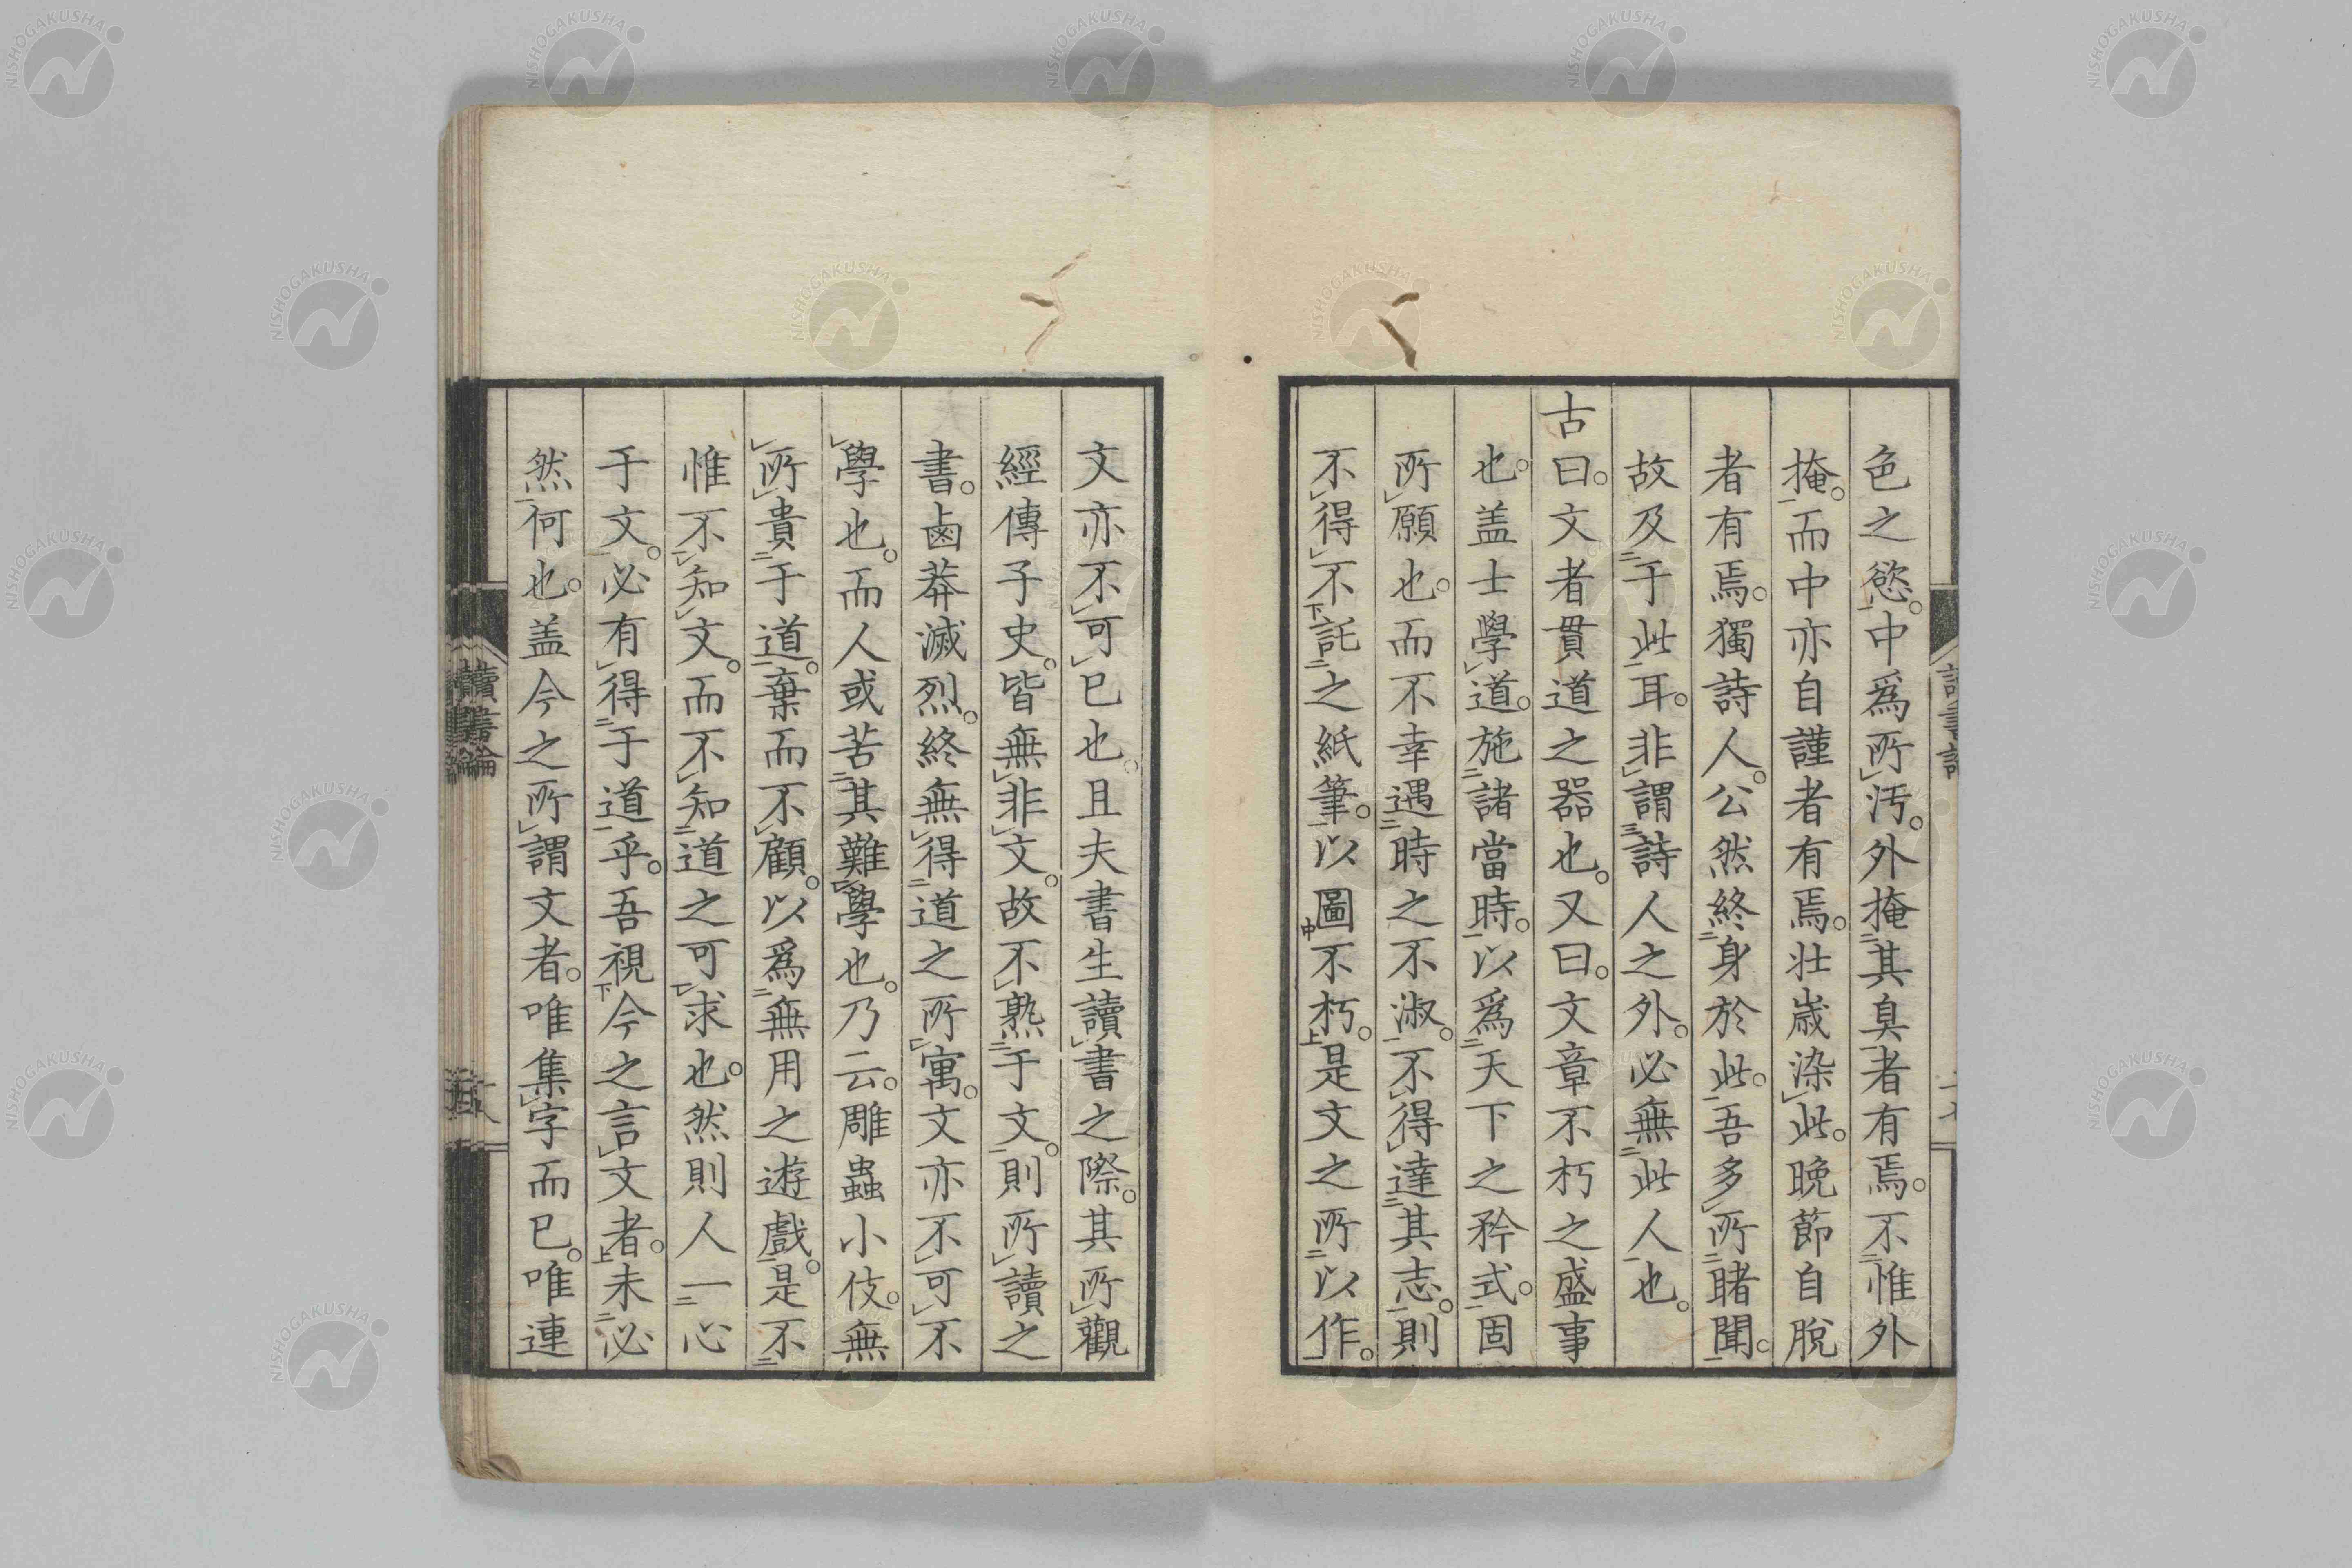 色之慾。中爲所汚。外掩其臭者有焉。不惟外
掩。而中亦自謹者有焉。壮歳染此。晩節自脫
者有焉。獨詩人。公然終身於此。吾多所睹聞。
故及于此耳。非謂詩人之外。必無此人也。
古曰。文者貫道之器也。又曰。文章不朽之盛事
也。盖士學道。施諸當時。以爲天下之矜式。固
所願也。而不幸遇時之不淑。不得達其志。則
不得不託之紙筆。以圖不朽。是文之所以作。
文亦不可已也。且夫書生讀書之際。其所觀
經傳子史。皆無非文。故不熟于文。則所讀之
書。鹵莽滅烈。終無得道之所寓。文亦不可不
學也。而人或苦其難學也。乃云。雕蟲小伎。無
所貴于道。棄而不顧。以爲無用之遊戲。是不
惟不知文。而不知道之可求也。然則人一心
于文。必有得于道乎。吾視今之言文者。未必
然何也。盖今之所謂文者。唯集字而已。唯連
讀書論
NISHOGAKUSHA